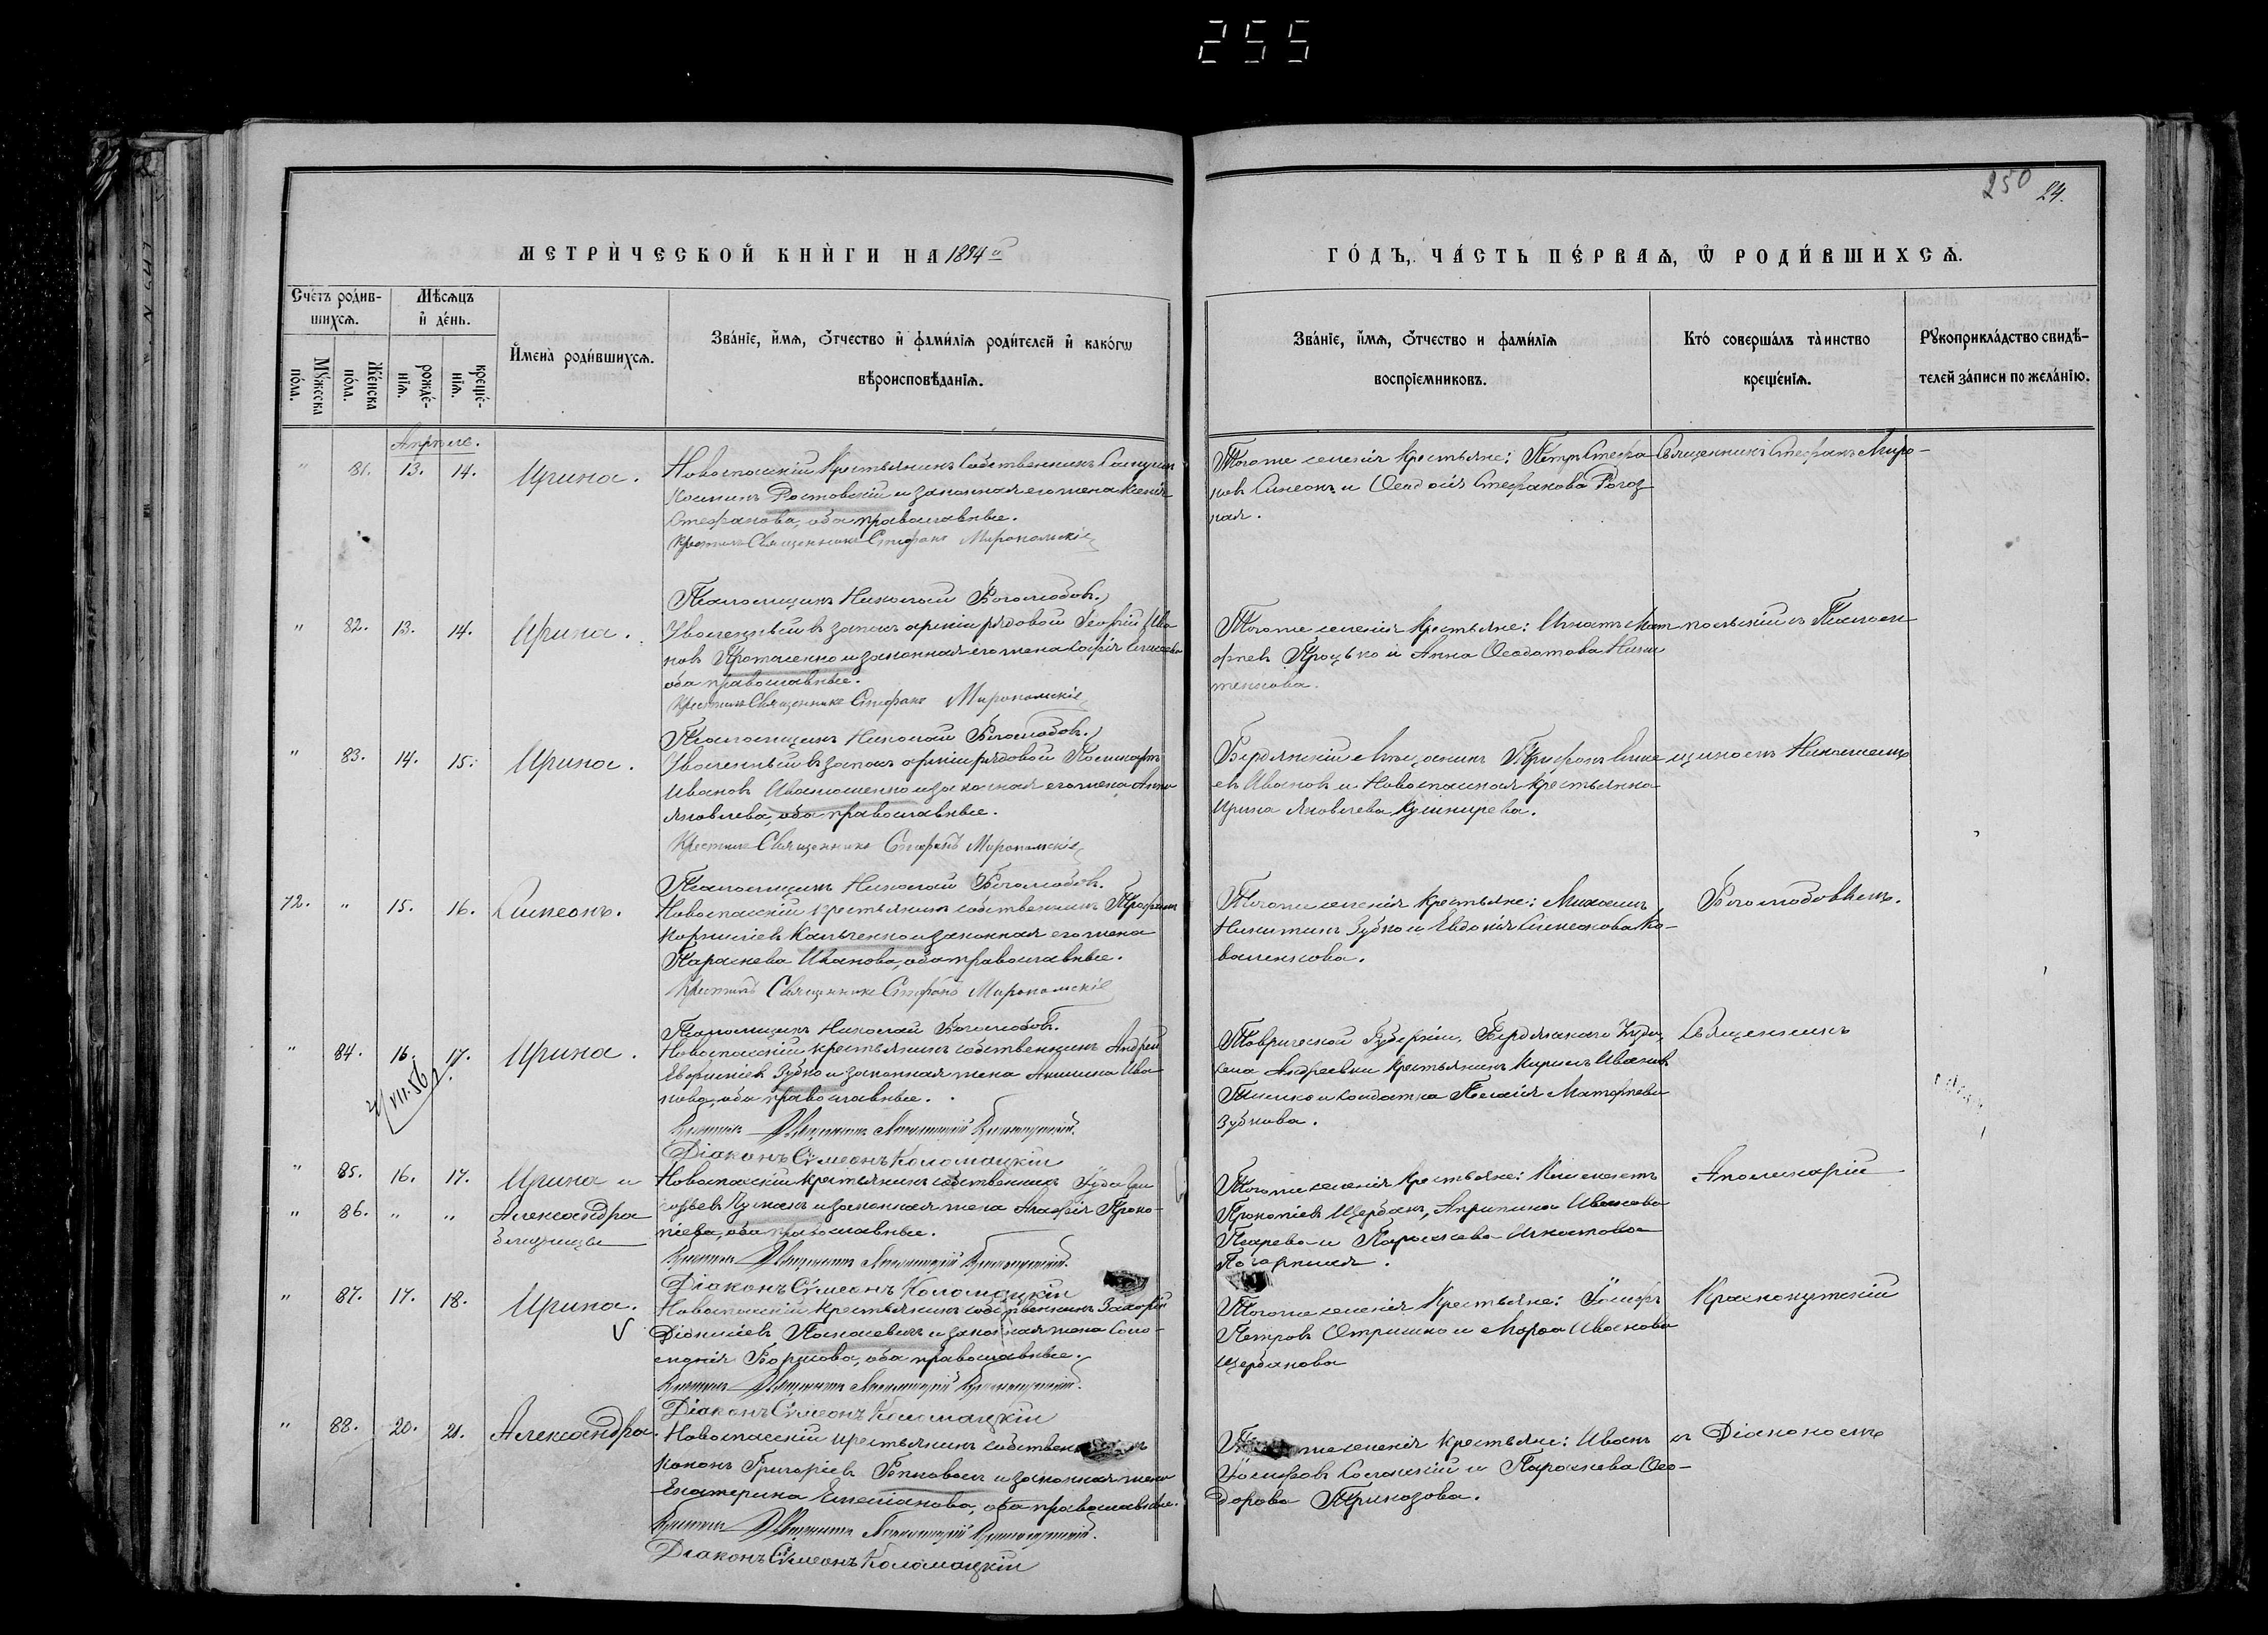 255
250 24.
МЕТРИ́ЧЕСКОЙ КНИ́ГИ НА 1894 й
ГО́ДЪ, ЧА́СТЬ ПЕ́РВАѦ, Ѡ҆ РОДИ́ВШИХСѦ.
Сче́тъ роди́в-
шихсѧ.
Мꙋ́жеска по́ла.
Же́нска по́ла.
Мѣ́сѧцъ
и҆ де́нь.
рожде́-
нїѧ.
креще́-
нїѧ.
И҆мена̀ роди́вшихсѧ.
Зва́нїе, и҆́мѧ, ѻ҆́тчество и҆ фами́лїѧ роди́телей и҆ како́гѡ
вѣроисповѣ́данїѧ.
Зва́нїе, и҆́мѧ, ѻ҆́тчество и фами́лїѧ
воспрїе́мниковъ.
Кто́ соверша́лъ та́инство
креще́нїѧ.
Рꙋкоприкла́дство свидѣ́-
телей за́писи по жела́нїю.
Апрѣль.
" 81. 13. 14. Ирина.
Новоспасскій крестьянинъ собственникъ
Косминъ Ростовскій и законная его жена Ксенія
Стефанова, оба православные.
Крестилъ Священникъ Стефанъ Миропольскій
Псаломщикъ Николай Боголюбов.
Тогоже селенія крестьяне: Петръ Стефа-
новъ Симеонъ и Ѳеодосія Стефанова Рогоз
ная.
Священникъ Стефанъ Миро-
" 82. 13. 14. Ирина.
Уволенный въ запасъ арміи рядовой Георгій Ива
новъ Протасенко и законная его жена Софія
оба православные.
Крестилъ Священникъ Стефанъ Миропольскій
Псаломщикъ Николай Боголюбов.
Тогоже селенія крестьяне: Игнатъ Мат
фіевъ Процько и Анна Ѳеодотова Ники
тенкова.
польскій съ Псалом
" 83. 14. 15. Ирина.
Уволенный въ запасъ арміи рядовой Поликарпъ
Ивановъ Ивашененко и законная его жена Анна
Яковлева, оба православные.
Крестилъ Священникъ Стефанъ Миропольскій
Псаломщикъ Николай Боголюбов.
Бердянскій мѣщанинъ Трифонъ
евъ Ивановъ и Новоспасская крестьянка
Ирина Яковлева Кушнирева.
щикомъ Николаемъ
72. " 15. 16. Симеонъ.
Новоспасскій крестьянинъ собственникъ Трофимъ
Корниліевъ Кальченко и законная его жена
Параскева Иванова, оба православные.
Крестилъ Священникъ Стефанъ Миропольскій
Псаломщикъ Николай Боголюбов.
Тогоже селенія крестьяне: Михаилъ
Никитинъ Зубко и Евдокія Симеонова Ко-
валенкова.
Боголюбовымъ.
" 84. 16. 17. Ирина.
Новоспасскій крестьянинъ собственникъ Андрей
Зубко и законная жена Акилина Ива
нова, оба православные.
Крестилъ Священникъ Аполлинарій Краснокутскій.
Діаконъ Сѵмеонъ Коломацкій
Таврической Губерніи, Бердянскаго Уѣзда,
села Андреевки крестьянинъ Кирилъ Ивановъ
Тишко и солдатка Пелагія Матфіева
Зубкова.
Священникъ
" 85. 16. 17. Ирина и
" 86. " " Александра
близнецы
Новоспасскій крестьянинъ собственникъ
Кушакъ и законная жена Агафія Проко-
піева, оба православные.
Крестилъ Священникъ Аполлинарій Краснокутскій.
Діаконъ Сѵмеонъ Коломацкій
Тогоже селенія крестьяне: Климентъ
Прокопіевъ Щербакъ, Агрипина Иванова
Писарева и Параскева Игнатова
Аполинарій
" 87. 17. 18. Ирина.
Новоспасскій крестьянинъ собственникъ Захарій
Діонисіевъ и законная жена Соло-
монія Борисова, оба православные.
Крестилъ Священникъ Аполлинарій Краснокутскій.
Діаконъ Сѵмеонъ Коломацкій
Тогоже селенія крестьяне: Іосифъ
Петровъ Отришко и Марѳа Иванова
Щербакова
Краснокутскій
" 88. 20. 21. Александра.
Новоспасскій крестьянинъ
Кононъ Григоріевъ и законная жена
Екатерина Емеліанова, оба православные.
Крестилъ Священникъ Аполлинарій Краснокутскій.
Діаконъ Сѵмеонъ Коломацкій
селенія крестьяне: Иванъ
Іосифовъ и Параскева Ѳео-
дорова Триказова.
съ Діакономъ